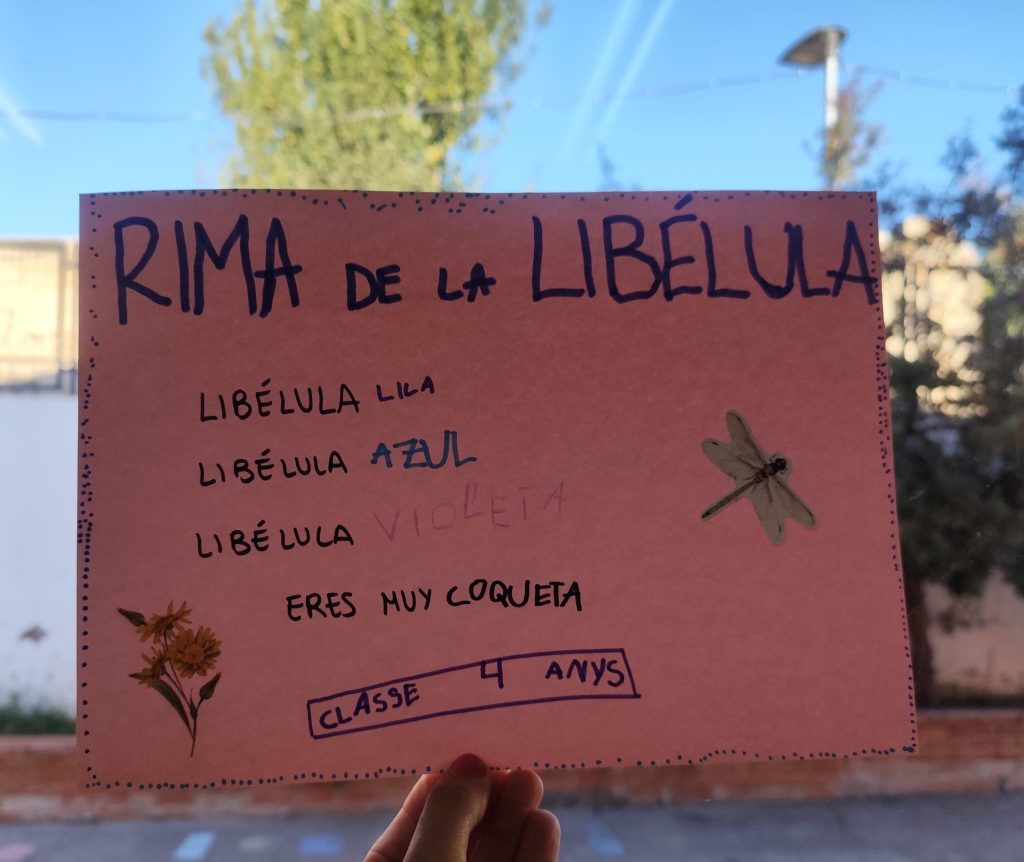 RIMA DE LA LIBÉLULA
LIBÉLULA LILA
LIBÉLULA AZUL
LIBÉLULA VIOLETA
ERES MUY COQUETA
CLASSE 4 ANYS